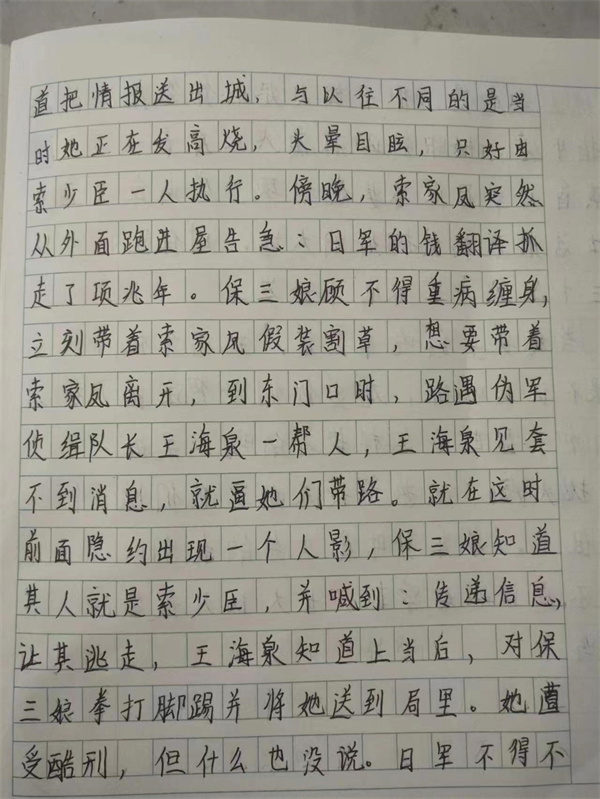 道把情报送出城，与以往不同的是当
时她正在发高烧，头晕目眩，只好由
索少臣一人执行。傍晚，索家凤突然
从外面跑进屋告急：日军的钱翻译抓
走了项兆年。保三娘顾不得重病缠身，
立刻带着索家凤假装割草，想要带着
索家凤离开，到东门口时，路遇伪军
侦缉队长王海泉一帮人，王海泉见套
不到消息，就逼她们带路。就在这时
前面隐约出现一个人影，保三娘知道
其人就是索少臣，并喊到：传递信息，
让其逃走，王海泉知道上当后，对保
三娘拳打脚踢并将她送到局里。她遭
受酷刑，但什么也没说。日军不得不